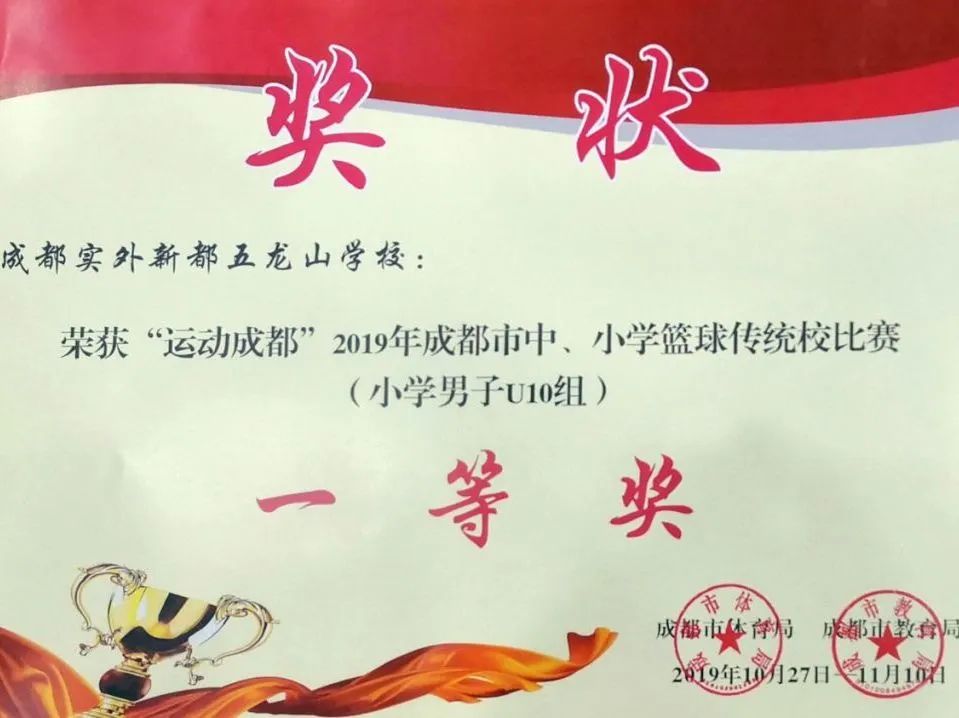 奖状
成都实外新都五龙山学校：
荣获“运动成都”2019年成都市中、小学篮球传统校比赛
（小学男子U10组）
一等奖
成都市体育局 成都市教育局
2019年10月27日—11月10日